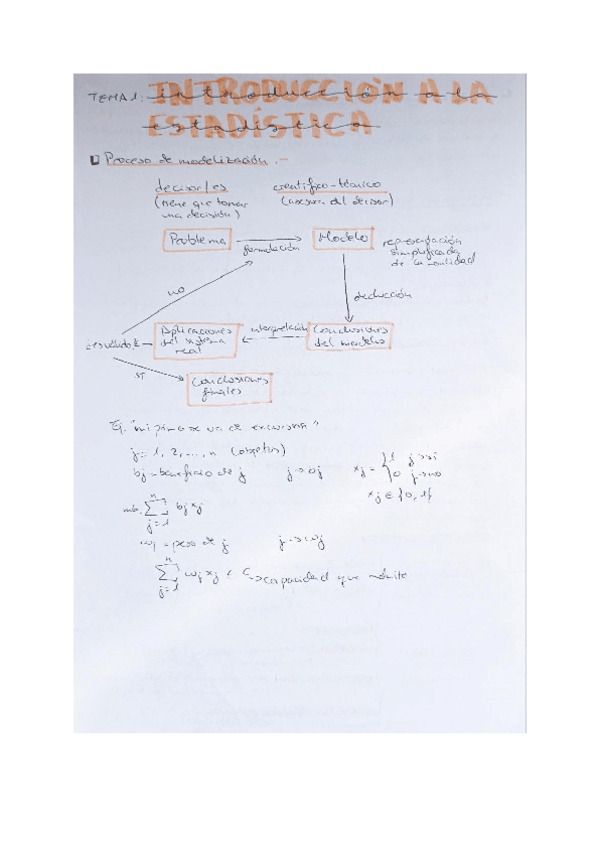 TEMA 1: INTRODUCCIÓN A LA
ESTADÍSTICA
Proceso de modelización.-
decisor/es
(tiene que tomar
una decisión)
científico-técnico
(asesora del decisor)
Problema
formulación
Modelo
representación
simplificada
de la realidad
deducción
no
Aplicaciones
del sistema
real
interpretación
Conclusiones
del modelo
sí
Conclusiones
finales
Ej.
j=1, 2, ..., n (objetos)
bj = beneficio de j
j → bj
xj = { 1 j → sí
0 j → no
xj ∈ {0, 1}
∑ j=1 n bj xj
wj = peso de j
j → wj
∑ j=1 n wj xj ≤ C → capacidad que